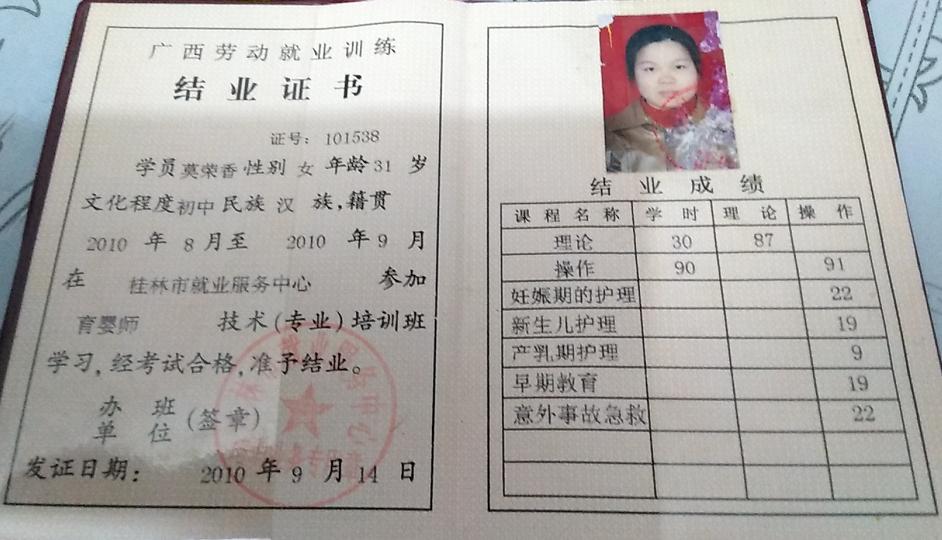 广西劳动就业训练
结业证书
证号：101538
学员莫荣香性别 女 年龄31 岁
文化程度初中民族 汉 族，籍贯
2010 年 8 月至 2010 年 9 月
在 桂林市就业服务中心 参加
育婴师 技术(专业)培训班
学习，经考试合格，准予结业。
办班单位(签章)
发证日期： 2010 年 9 月 14 日
结业成绩
课程名称 学时 理论 操作
理论 30 87
操作 90 91
妊娠期的护理 22
新生儿护理 19
产乳期护理 9
早期教育 19
意外事故急救 22